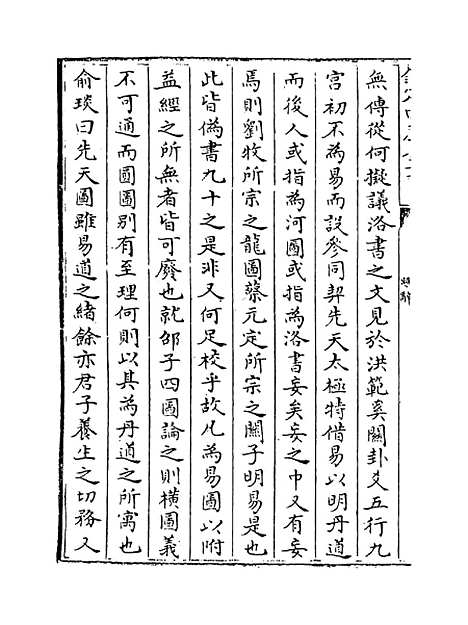 無傳從何擬議洛書之文見於洪範奚關卦爻五行九
宫初不為易而設參同契先天太極特借易以明丹道
而後人或指為河圖或指為洛書妄矣妄之中又有妄
焉則劉牧所宗之龍圖蔡元定所宗之關子明易是也
此皆偽書九十之是非又何足校乎故凡為易圖以附
益經之所無者皆可廢也就邵子四圖論之則横圖義
不可通而圓圖别有至理何則以其為丹道之所寓也
俞琰曰先天圖雖易道之緒餘亦君子養生之切務又